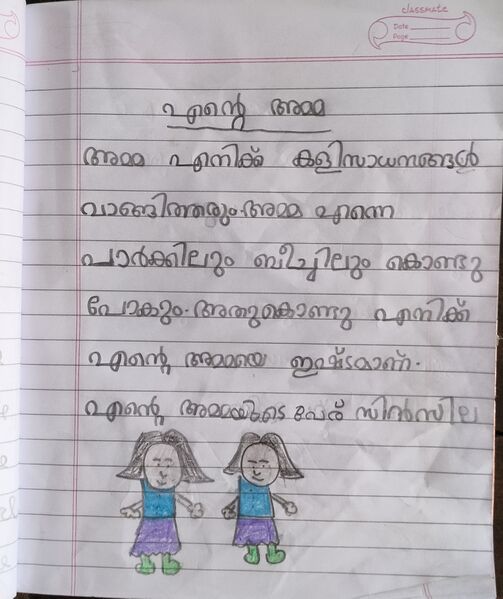 classmate
Date
Page
എന്റെ അമ്മ
അമ്മ എനിക്ക് കളിസാധനങ്ങൾ
വാങ്ങിത്തരും. അമ്മ എന്നെ
പാർക്കിലും ബീച്ചിലും കൊണ്ടു
പോകും. അതുകൊണ്ടു എനിക്ക്
എന്റെ അമ്മയെ ഇഷ്ടമാണ്.
എന്റെ അമ്മയുടെ പേര് സിൻസില